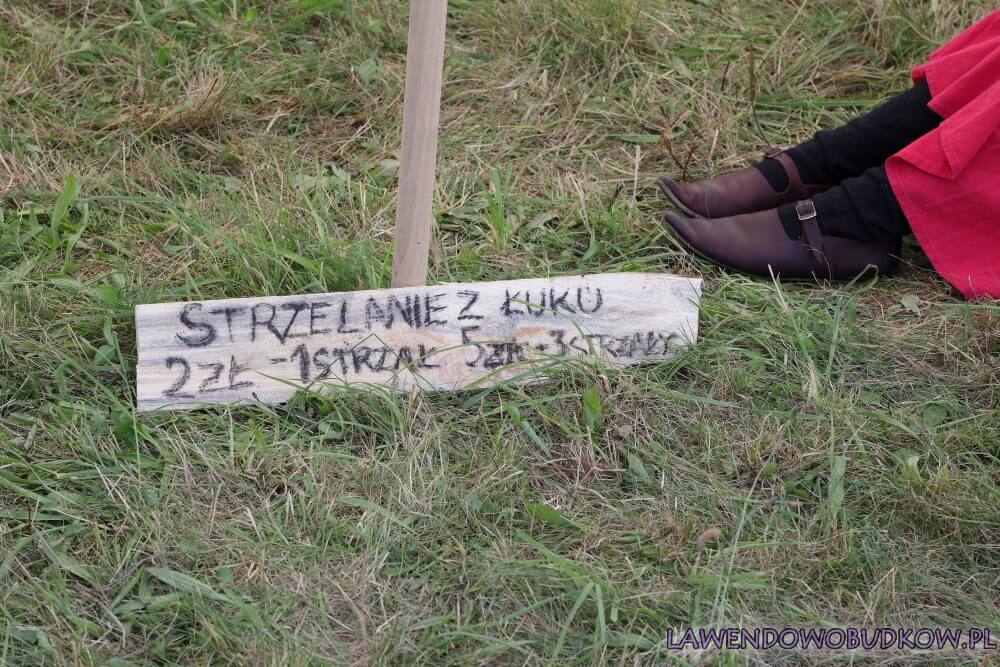 STRZELANIE Z ŁUKU
2 ZŁ - 1 STRZAŁ 5 ZŁ - 3 STRZAŁY
LAWENDOWOBUDKOW.PL